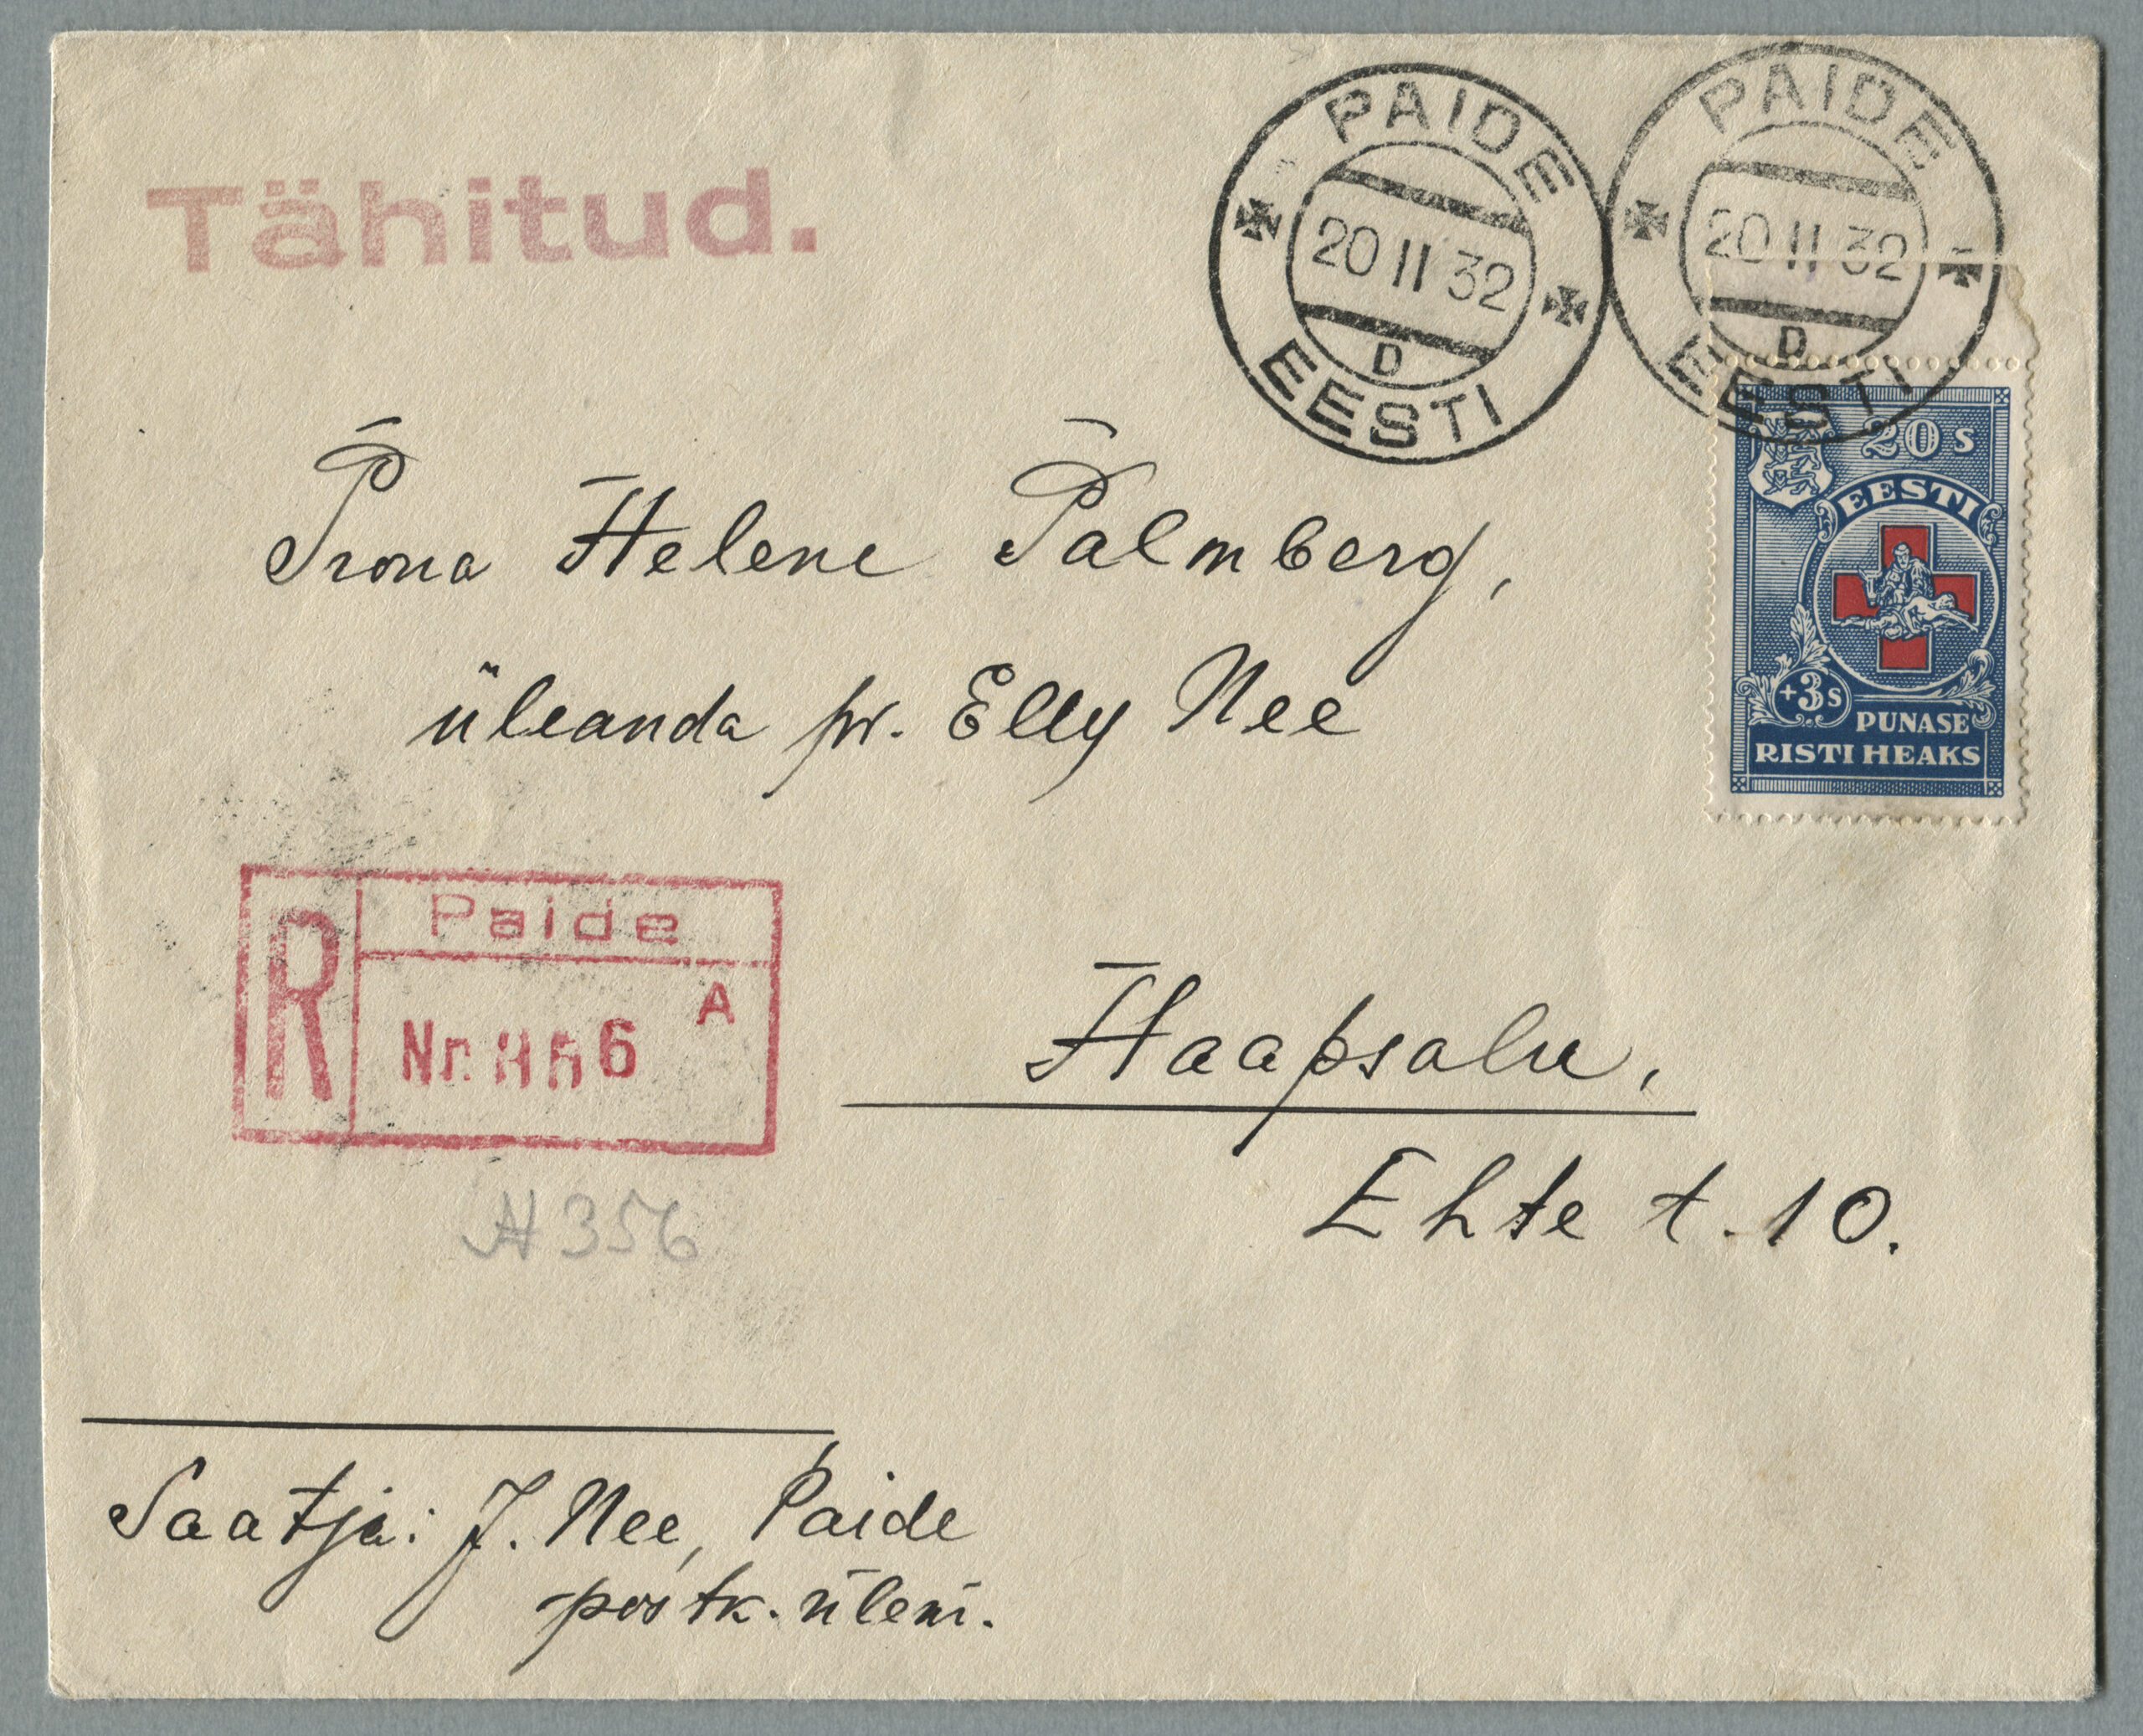 Tähitud.
PAIDE
20 II 32
D
EESTI
PAIDE
20 II 32
D
EESTI
20 s
EESTI
+3s
PUNASE
RISTI HEAKS
Proua Helene Palmberg,
üleanda pr. Elly Nee
R
Paide
A
Nr. 356
№ 356
Haapsalu.
Ehte t. 10.
Saatja: J. Nee, Paide
postk. ülem.